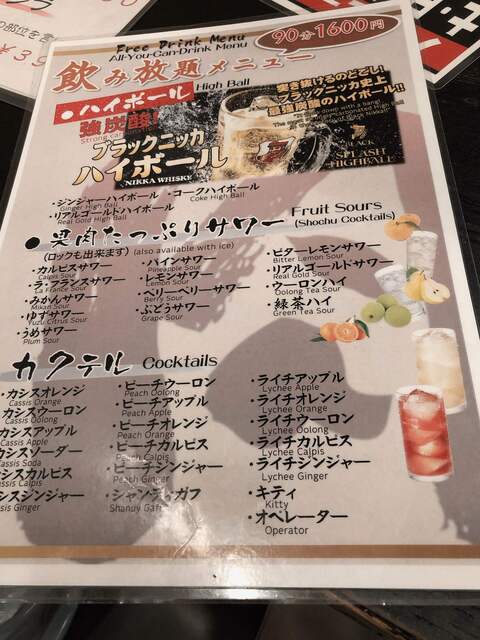 Free Drink Menu
All-You-Can-Drink Menu
90分 1600円
飲み放題メニュー
・ハイボール High Ball
強炭酸!
ブラックニッカ
ハイボール
NIKKA WHISKY
突き抜けるのどごし!
ブラックニッカ史上
最強炭酸のハイボール!!
BLACK
SPLASH
HIGHBALL
・ジンジャーハイボール ・コークハイボール
Ginger High Ball Coke High Ball
・リアルゴールドハイボール
Real Gold High Ball
・果肉たっぷりサワー Fruit Sours
(Shochu Cocktails)
(ロックも出来ます) (also available with ice)
・カルピスサワー
Calpis Sour
・ラ・フランスサワー
La France Sour
・みかんサワー
Mikan Sour
・ゆずサワー
Yuzu Citrus Sour
・うめサワー
Plum Sour
・パインサワー
Pineapple Sour
・レモンサワー
Lemon Sour
・ベリーベリーサワー
Berry Sour
・ぶどうサワー
Grape Sour
・ビターレモンサワー
Bitter Lemon Sour
・リアルゴールドサワー
Real Gold Sour
・ウーロンハイ
Oolong Tea Sour
・緑茶ハイ
Green Tea Sour
カクテル Cocktails
・カシスオレンジ
Cassis Orange
カシスウーロン
Cassis Oolong
カシスアップル
Cassis Apple
カシスソーダー
Cassis Soda
シスカルピス
Cassis Calpis
シスジンジャー
Cassis Ginger
・ピーチウーロン
Peach Oolong
・ピーチアップル
Peach Apple
・ピーチオレンジ
Peach Orange
・ピーチカルピス
Peach Calpis
・ピーチジンジャー
Peach Ginger
・シャンディ・ガフ
Shanuy Gaff
・ライチアップル
Lychee Apple
・ライチオレンジ
Lychee Orange
・ライチウーロン
Lychee Oolong
・ライチカルピス
Lychee Calpis
・ライチジンジャー
Lychee Ginger
・キティ
Kitty
・オペレーター
Operator